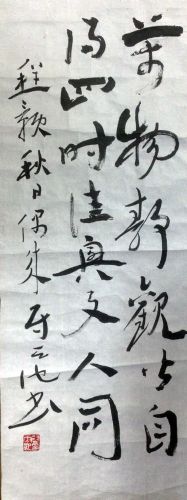 萬物靜觀皆自
得四时佳興与人同
程顥秋日偶成書